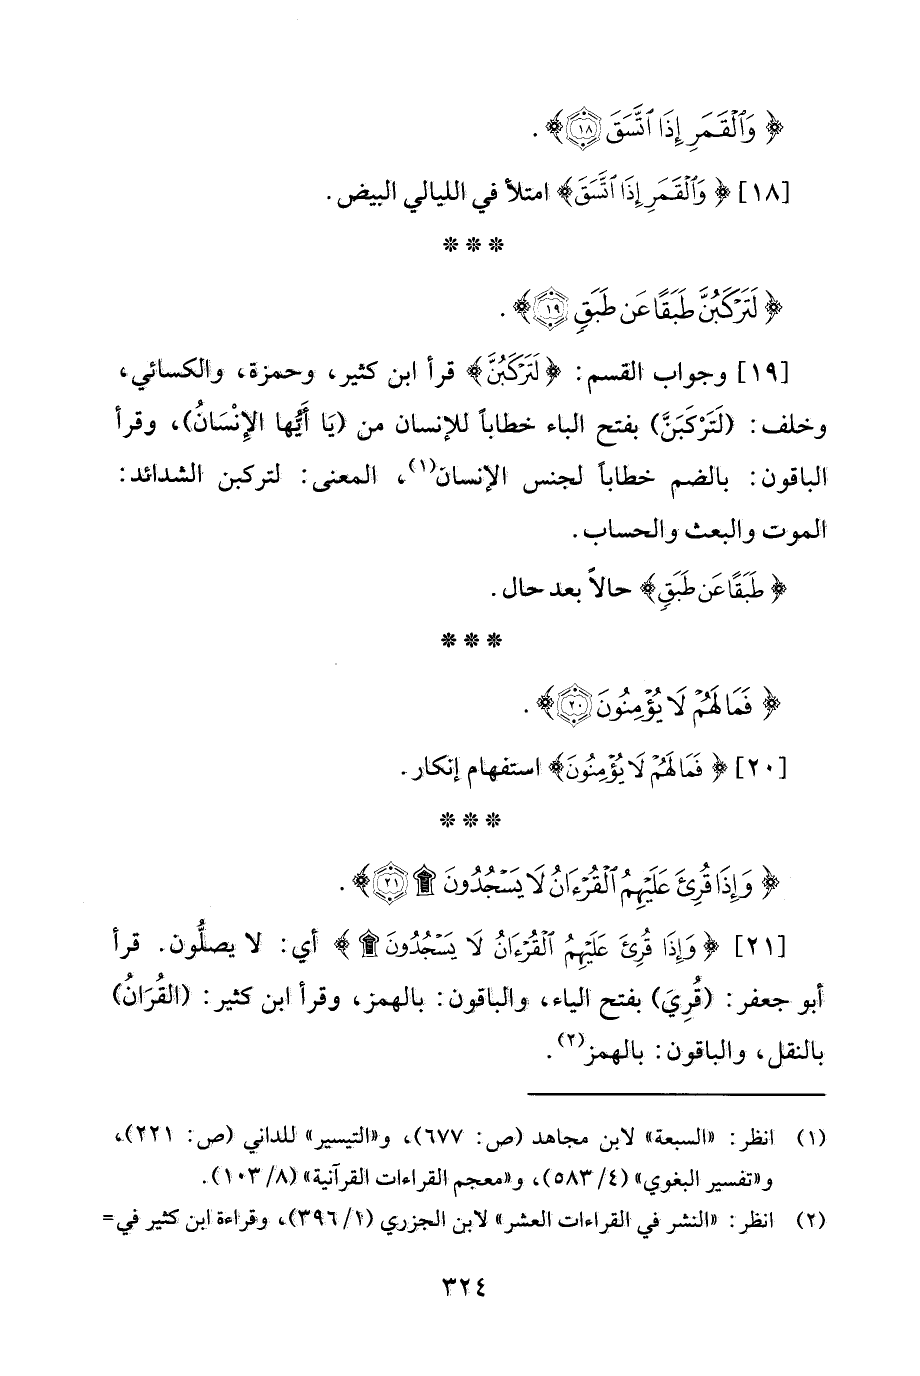 ﴿ وَٱلْقَمَرِ إِذَا ٱتَّسَقَ ۝١٨ ﴾ .
[١٨] ﴿ وَٱلْقَمَرِ إِذَا ٱتَّسَقَ ﴾ امتلأ في الليالي البيض .
* * *
﴿ لَتَرْكَبُنَّ طَبَقًا عَن طَبَقٍ ۝١٩ ﴾ .
[١٩] وجواب القسم : ﴿ لَتَرْكَبُنَّ ﴾ قرأ ابن كثير ، وحمزة ، والكسائي ،
وخلف : (لَتَرْكَبَنَّ) بفتح الباء خطاباً للإنسان من (يَا أَيُّها الإِنْسَانُ) ، وقرأ
الباقون : بالضم خطاباً لجنس الإنسان(١) ، المعنى : لتركبن الشدائد :
الموت والبعث والحساب .
﴿ طَبَقًا عَن طَبَقٍ ﴾ حالاً بعد حال .
* * *
﴿ فَمَا لَهُمْ لَا يُؤْمِنُونَ ۝٢٠ ﴾ .
[٢٠] ﴿ فَمَا لَهُمْ لَا يُؤْمِنُونَ ﴾ استفهام إنكار .
* * *
﴿ وَإِذَا قُرِئَ عَلَيْهِمُ ٱلْقُرْءَانُ لَا يَسْجُدُونَ ۩ ۝٢١ ﴾ .
[٢١] ﴿ وَإِذَا قُرِئَ عَلَيْهِمُ ٱلْقُرْءَانُ لَا يَسْجُدُونَ ۩ ﴾ أي : لا يصلُّون . قرأ
أبو جعفر : (قُرِيَ) بفتح الياء ، والباقون : بالهمز ، وقرأ ابن كثير : (القُرَانُ)
بالنقل ، والباقون : بالهمز(٢) .
(١) انظر : «السبعة» لابن مجاهد (ص : ٦٧٧) ، و«التيسير» للداني (ص : ٢٢١) ،
و«تفسير البغوي» (٤/ ٥٨٣) ، و«معجم القراءات القرآنية» (٨/ ١٠٣) .
(٢) انظر : «النشر في القراءات العشر» لابن الجزري (١/ ٣٩٦) ، وقراءة ابن كثير في=
٣٢٤